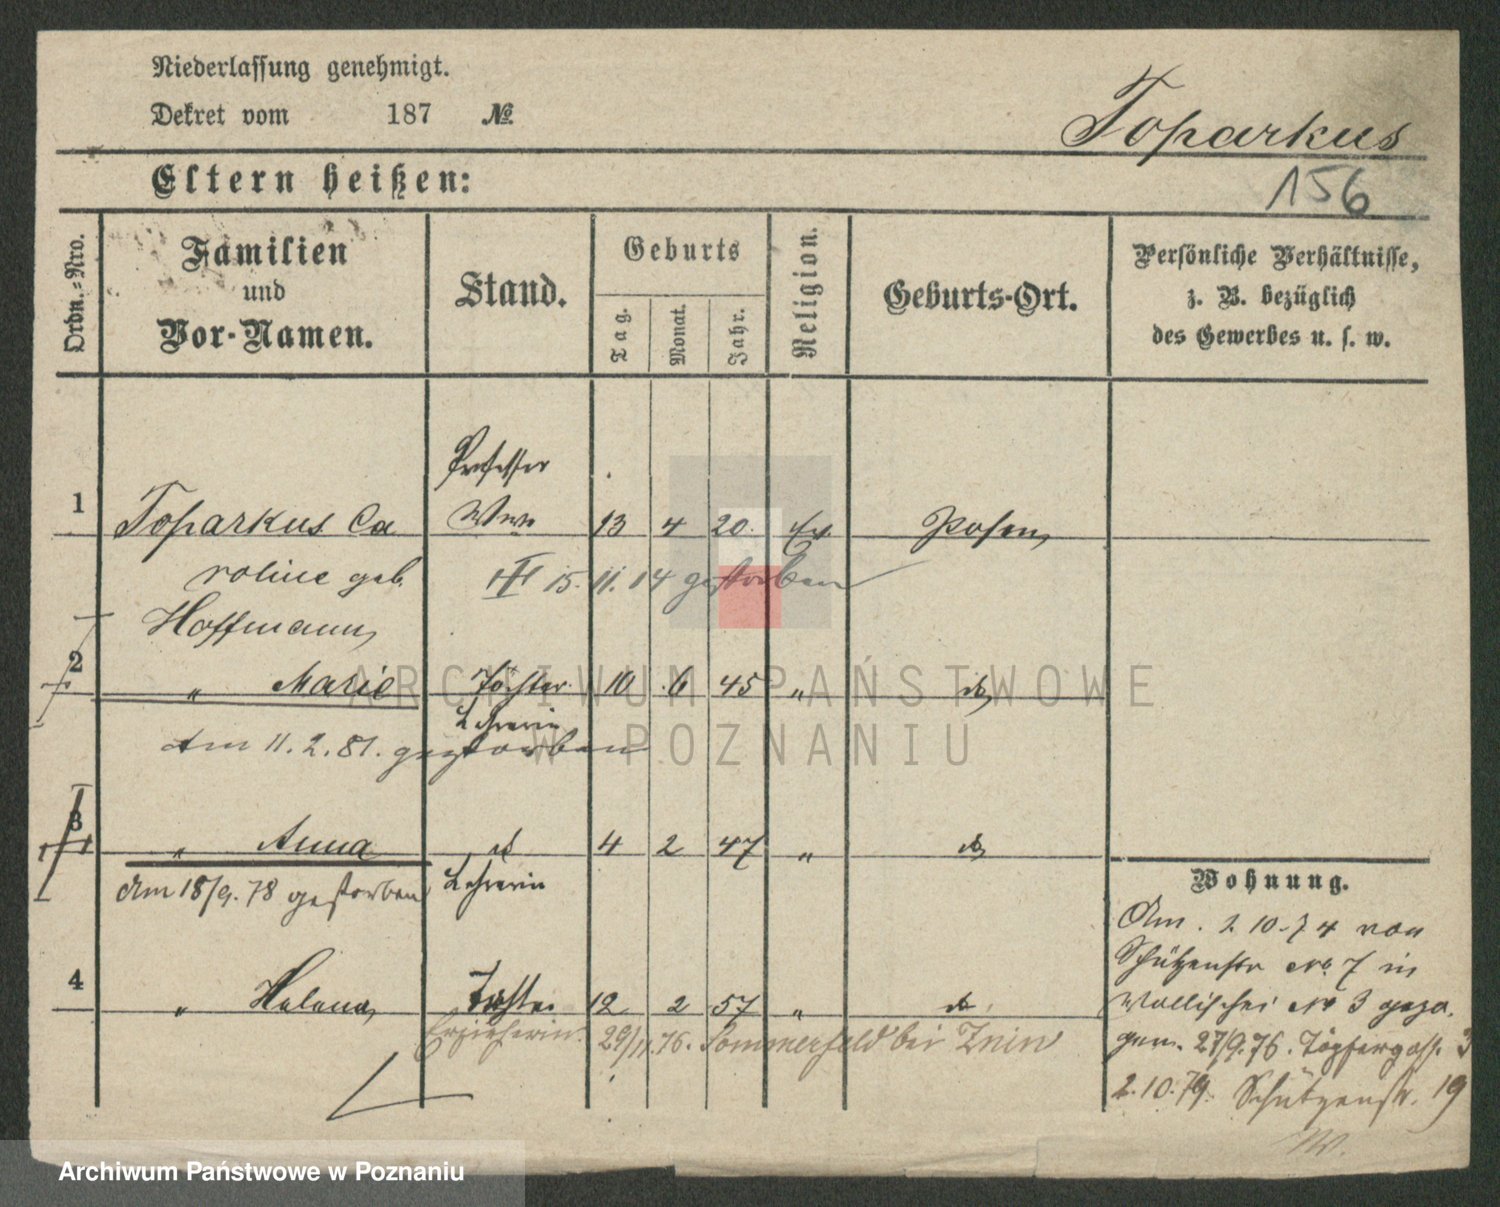 Niederlassung genehmigt.
Dekret vom 187 №
Toparkus
156
Eltern heißen:
Ordn.-Nro.
Familien
und
Vor-Namen.
Stand.
Geburts
Tag.
Monat.
Jahr.
Religion.
Geburts-Ort.
Persönliche Verhältnisse,
z. B. bezüglich
des Gewerbes u. s. w.
Professor
1 Toparkus Ca Wwe 13 4 20. Ev. Posen
roline geb. III 15. 11. 14 gestorben
Hoffmann
2 " Marie Tochter 10 6 45 " do
Lehrerin
Am 11. 2. 81. gestorben
3 " Anna do 4 2 47 " do
Am 18/9. 78 gestorben Lehrerin
Wohnung.
Am. 2 10. 74 von
Schützenstr No. 7 in
Wallischei No 3 gezo.
gen. 27/9.76. Töpfergass. 3
2.10.79. Schützenstr. 19
4 " Helena Tochter 12 2 57 " do
Erzieherin. 29/11.76. Sommerfeld bei Znin
ARCHIWUM PAŃSTWOWE
W POZNANIU
Archiwum Państwowe w Poznaniu